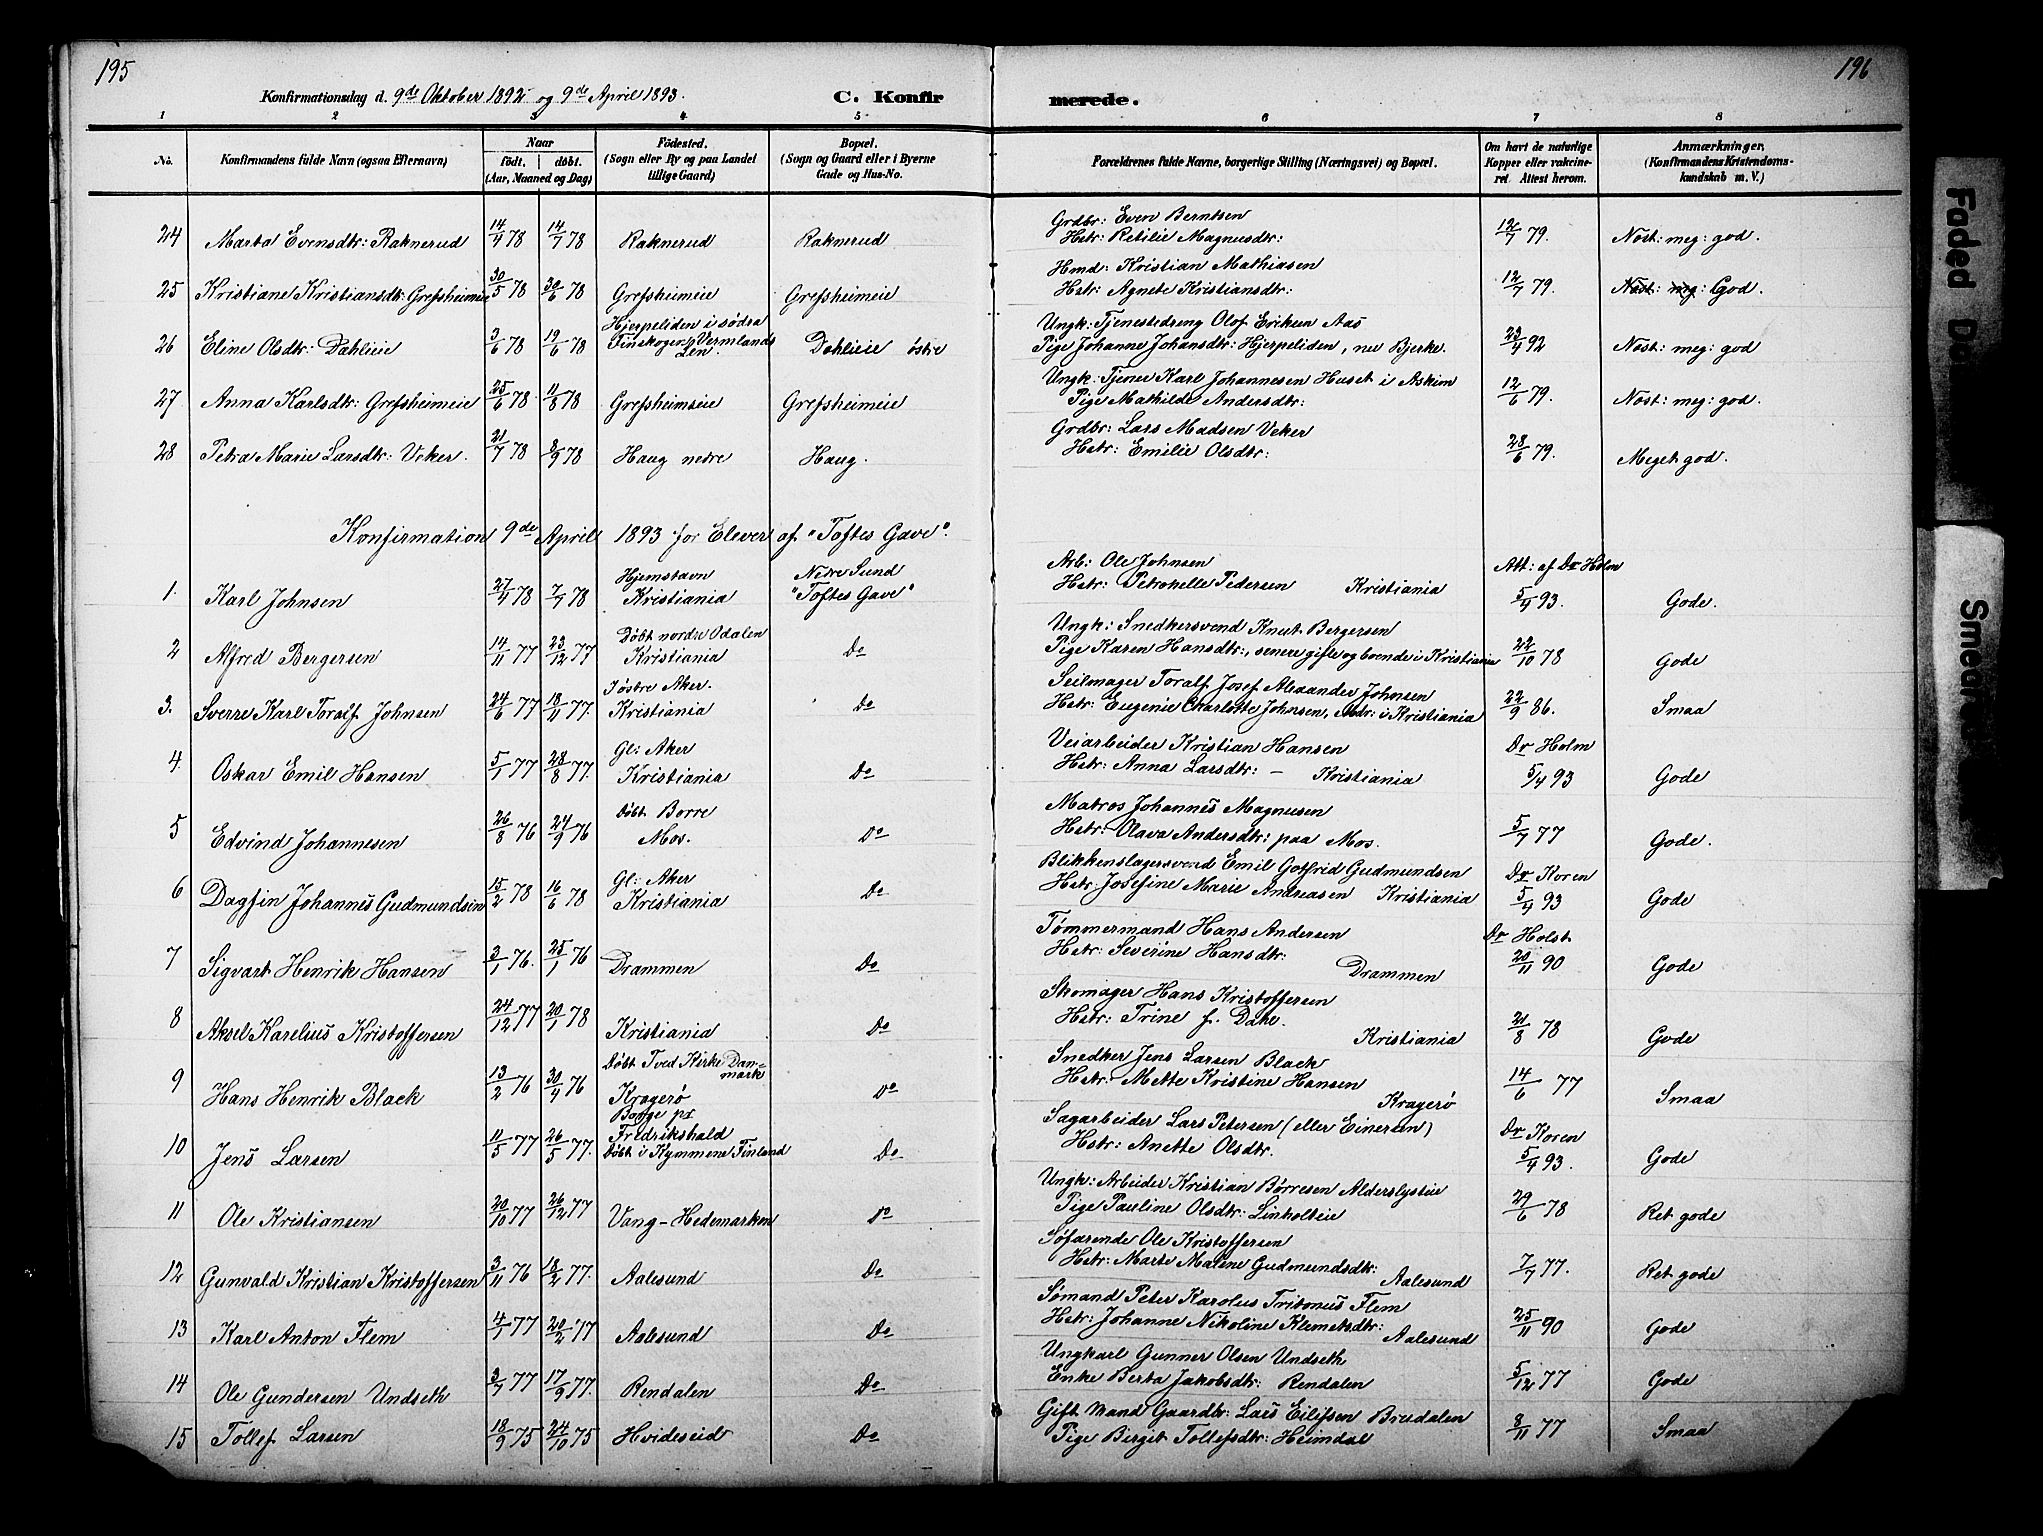 195
196
Konfirmationsdag d. 9de Oktober 1892 og 9de April 1893.
C. Konfirmerede.
1 2 3 4 5 6 7 8
No.
Konfirmandens fulde Navn (ogsaa Efternavn)
Naar
født. døbt.
(Aar, Maaned og Dag)
Fødested.
(Sogn eller By og paa Landet
tillige Gaard)
Bopæl.
(Sogn og Gaard eller i Byerne
Gade og Hus-No.
Forældrenes fulde Navne, borgerlige Stilling (Næringsvei) og Bopæl.
Om havt de naturlige
Kopper eller vakcineret
Attest herom.
Anmærkninger,
(Konfirmandens Kristendomskundskab
m. V.)
24 Marta Evensdtr: Raknerud 14/4 78 14/7 78 Raknerud Raknerud Grdbr: Even Berntsen
Hstr: Retilie Magnusdtr: 12/7 79. Nost: meg: god.
25 Kristiane Kristiansdtr: Grefsheimeie 30/5 78 30/6 78 Grefsheimeie Grefsheimeie Hmd: Kristian Mathiasen
Hstr: Agnete Kristiansdtr: 12/7 79. Nost: meg: God.
26 Eline Olsdtr: Dahlieie 3/6 78 19/6 78 Hjerpeliden i södra
Finskogen Vermlands
Len. Dahlieie østre Ungk: Tjenestedreng Olof Eriksen Aas
Pige Johanne Johansdtr: Hjerpeliden, nu Bjerke. 23/4 92 Nost: meg: god
27 Anna Karlsdtr: Grefsheimeie 25/6 78 11/8 78 Grefsheimseie Grefsheimeie Ungk: Tjener Karl Johannesen Huset i Askim
Pige Mathilde Andersdtr: 12/6 79. Nost: meg: god.
28 Petra Marie Larsdtr: Veker. 21/7 78 8/9 78 Haug nedre Haug. Grdbr: Lars Madsen Veker
Hstr: Emilie Olsdtr: 28/6 79. Meget god.
Konfirmation 9de April 1893 for Elever af "Toftes Gave".
1. Karl Johnsen 27/4 78 7/7 78 Hjemstavn
Kristiania Nedre Sund
"Toftes Gave" Arb: Ole Johnsen
Hstr: Petronelle Pedersen Kristiania Att: af Dr Holm
5/4 93. Gode.
2 Alfred Bergersen 14/11 77 23/12 77 Døbt nordre Odalen
Kristiania Do Ungk: Snedkersvend Knut Bergersen
Pige Karen Hansdtr:, senere gifte og boende i Kristiania 22/10 78 Gode
3. Sverre Karl Toralf Johnsen 24/6 77 18/11 77. I østre Aker.
Kristiania Do Seilmager Toralf Josef Alexander Johnsen
Hstr: Eugenie Charlotte Johnsen, i Kristiania 22/9 86. Smaa
4 Oskar Emil Hansen 5/1 77 28/8 77. Gl: Aker
Kristiania Do Veiarbeider Kristian Hansen
Hstr: Anna Larsdtr: – Kristiania Dr Holm
5/4 93 Gode
5 Edvind Johannesen 26/8 76 24/9 76 Døbt Borre
Mos. Do Matros Johannes Magnusen
Hstr: Olava Andersdtr: paa Mos. 5/7 77 Gode.
6 Dagfin Johannes Gudmundsen 15/2 78 16/6 78 Gl: Aker
Kristiania Do Blikkenslagersvend Emil Gotfrid Gudmundsen
Hstr Josefine Marie Andreasen Kristiania Dr Koren
5/4 93 Gode
7 Sigvart Henrik Hansen 3/1 76. 25/1 76 Drammen Do Tømmermand Hans Andersen
Hstr: Severine Hansdtr:
Drammen Dr Holst
20/11 90 Gode
8 Aksel Karelius Kristoffersen 24/12 77 20/1 78 Kristiania Do Skomager Hans Kristoffersen
Hstr: Trine f. Dahl.
Kristiania 21/8 78 Gode
9 Hans Henrik Black 13/2 76 30/4 76 Døbt Tved Kirke Danmark
Kragerø Do Snedker Jens Larsen Black
Hstr: Mette Kristine Hansen
Kragerø 14/6 77 Smaa
10 Jens Larsen 11/5 77 26/5 77. Borge pr
Fredrikshald
Døbt i Kymmene Finland Do Sagarbeider Lars Petersen (eller Einersen)
Hstr: Anette Olsdtr. Dr Koren
5/4 93. Gode
11 Ole Kristiansen 20/10 77 26/12 77 Vang–Hedemarken Do Ungk: Arbeider Kristian Børresen Alderslysteie
Pige Pauline Olsdtr: Linholteie 29/6 78 Ret gode
12 Gunvald Kristian Kristoffersen 3/11 76 18/2 77. Aalesund Do Søfarende Ole Kristoffersen
Hstr: Marte Malene Gudmundsdtr:
Aalesund 7/7 77. Ret gode
13 Karl Anton Flem 4/1 77 20/2 77 Aalesund Do Sømand Peter Karolus Tritonus Flem
Hstr: Johanne Nikoline Klemetsdtr:
Aalesund 25/11 90 Gode
14 Ole Gundersen Undseth 3/7 77 17/9 77. Rendalen Do Ungkarl Gunner Olsen Undseth
Enke Berta Jakobsdtr: Rendalen 5/12 77 Gode
15 Tollef Larsen 18/9 75 24/10 75 Hvideseid Do Gift Mand Gaardbr: Lars Eilifsen Brudalen
Pige Birgit Tollefsdtr: Heimdal 8/11 77 Smaa
Faded